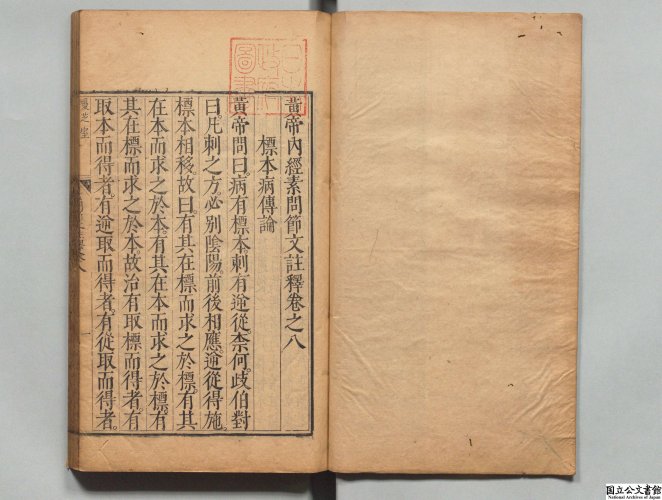 黄帝內經素問節文註釋卷之八
標本病傳論
黃帝問曰病有標本刺有逆從柰何歧伯對
曰凡刺之方必別陰陽前後相應逆從得施
標本相移故曰有其在標而求之於標有其
在本而求之於本有其在本而求之於標有
其在標而求之於本故治有取標而得者有
取本而得者有逆取而得者有從取而得者
国立公文書館
National Archives of Japan